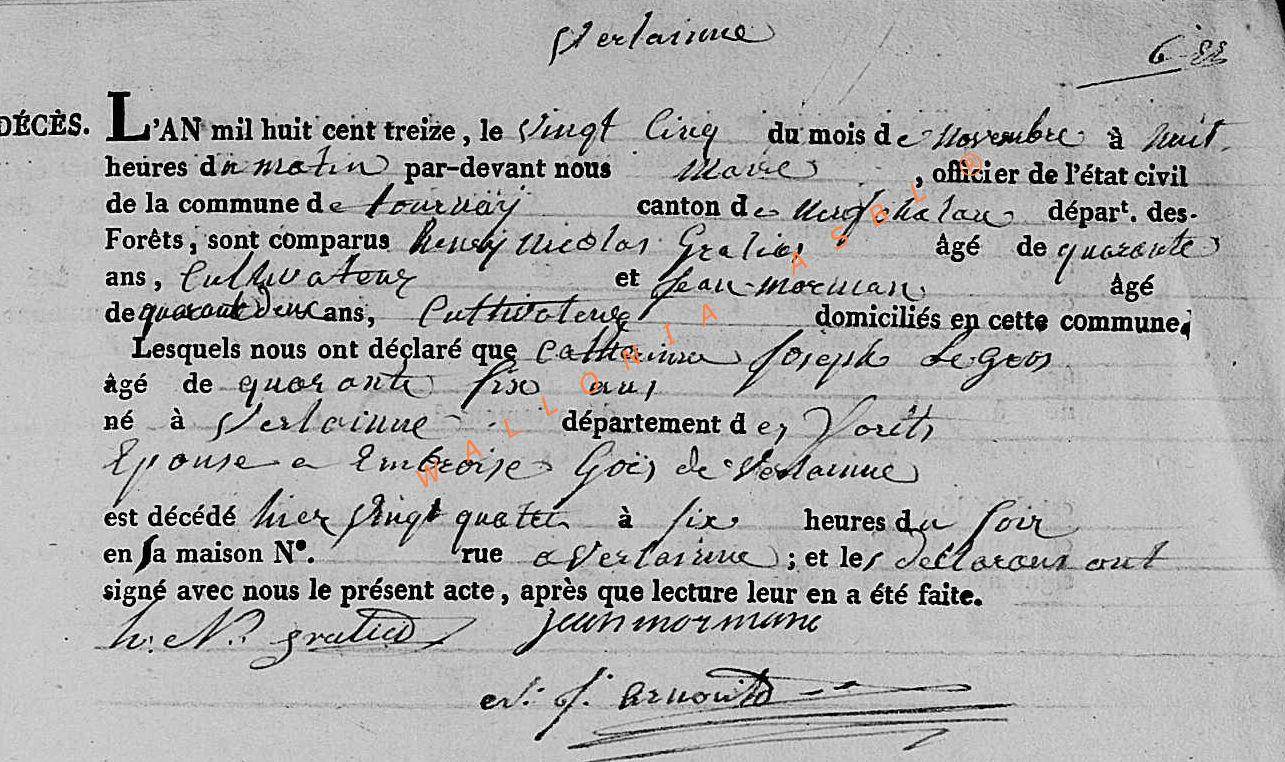 Verlainne
6
DÉCÈS. L'AN mil huit cent treize, le vingt Cinq du mois de Novembre à huit
heures du matin par-devant nous Maire, officier de l'état civil
de la commune de tournay canton de Neufchatau départ. des-
Forêts, sont comparus henry Nicolas Gralies âgé de quarante
ans, Cultivateur et Jean morman âgé
de quarante deux ans, Cultivateur domiciliés en cette commune.
Lesquels nous ont déclaré que Catherinne Joseph Legros
âgé de quarante six ans
né à Verlainne département des Forêts
Epouse a Embroise Goës de Verlainne
est décédé hier vingt quatre à six heures du soir
en sa maison N°. rue a Verlainne ; et les declarans ont
signé avec nous le présent acte, après que lecture leur en a été faite.
h: N. gralies jean mormanc
J. Arnould
WALLONIA ASBL ®